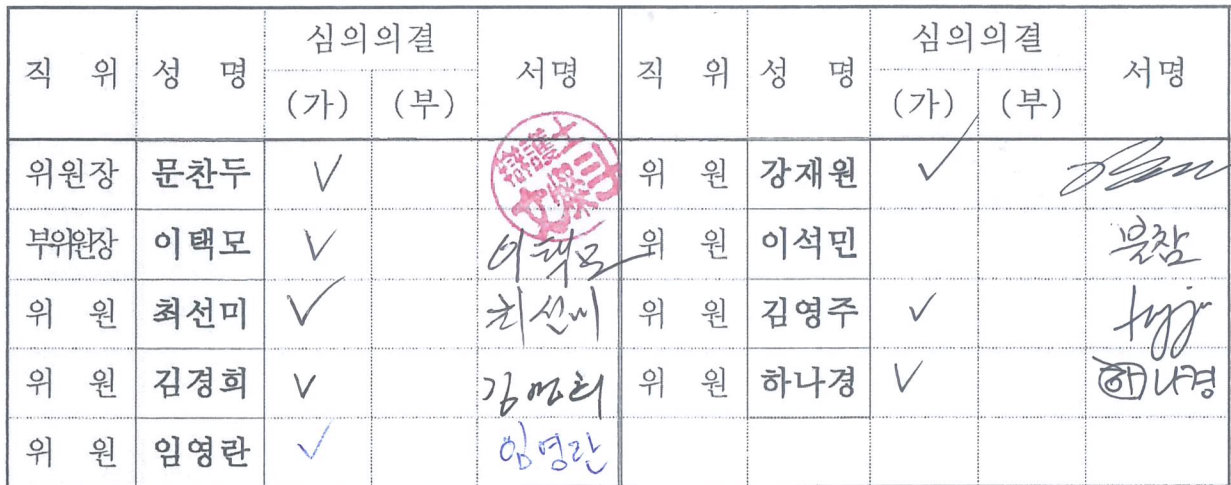 직 위 성 명 심의의결 서명 직 위 성 명 심의의결 서명
(가) (부) (가) (부)
위원장 문찬두 ✓ 辯護士 文燦斗 위 원 강재원 ✓
부위원장 이택모 ✓ 이택모 위 원 이석민 불참
위 원 최선미 ✓ 최선미 위 원 김영주 ✓
위 원 김경희 ✓ 김경희 위 원 하나경 ✓ 하나경
위 원 임영란 ✓ 임영란